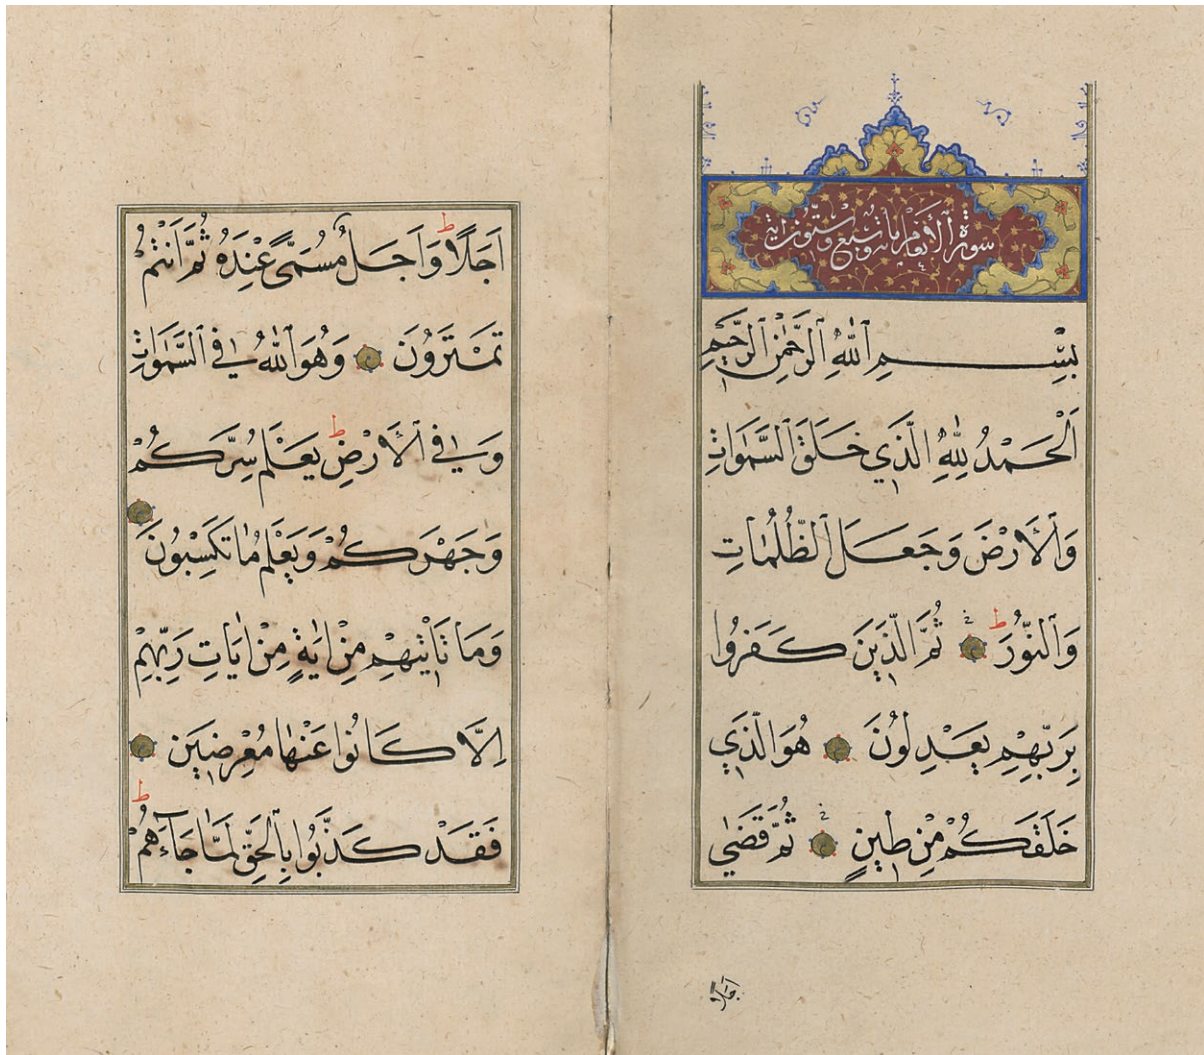 سورة الانعام مائة وسبع وستون آية
بِسْمِ ٱللَّهِ ٱلرَّحْمٰنِ ٱلرَّحِيمِ
اَلْحَمْدُ لِلّٰهِ الَّذِي خَلَقَ السَّمٰوَاتِ
وَالْاَرْضَ وَجَعَلَ الظُّلُمَاتِ
وَالنُّورَ ط ثُمَّ الَّذِينَ كَفَرُوا
بِرَبِّهِمْ يَعْدِلُونَ هُوَ الَّذِي
خَلَقَكُمْ مِنْ طِينٍ ثُمَّ قَضٰى
اَجَلًا
اَجَلًا ط وَاَجَلٌ مُسَمًّى عِنْدَهُ ثُمَّ اَنْتُمْ
تَمْتَرُونَ وَهُوَ اللّٰهُ فِي السَّمٰوَاتِ
وَفِي الْاَرْضِ ط يَعْلَمُ سِرَّكُمْ
وَجَهْرَكُمْ وَيَعْلَمُ مَا تَكْسِبُونَ
وَمَا تَاْتِيهِمْ مِنْ اٰيَةٍ مِنْ اٰيَاتِ رَبِّهِمْ
اِلَّا كَانُوا عَنْهَا مُعْرِضِينَ
فَقَدْ كَذَّبُوا بِالْحَقِّ لَمَّا جَآءَهُمْ ط